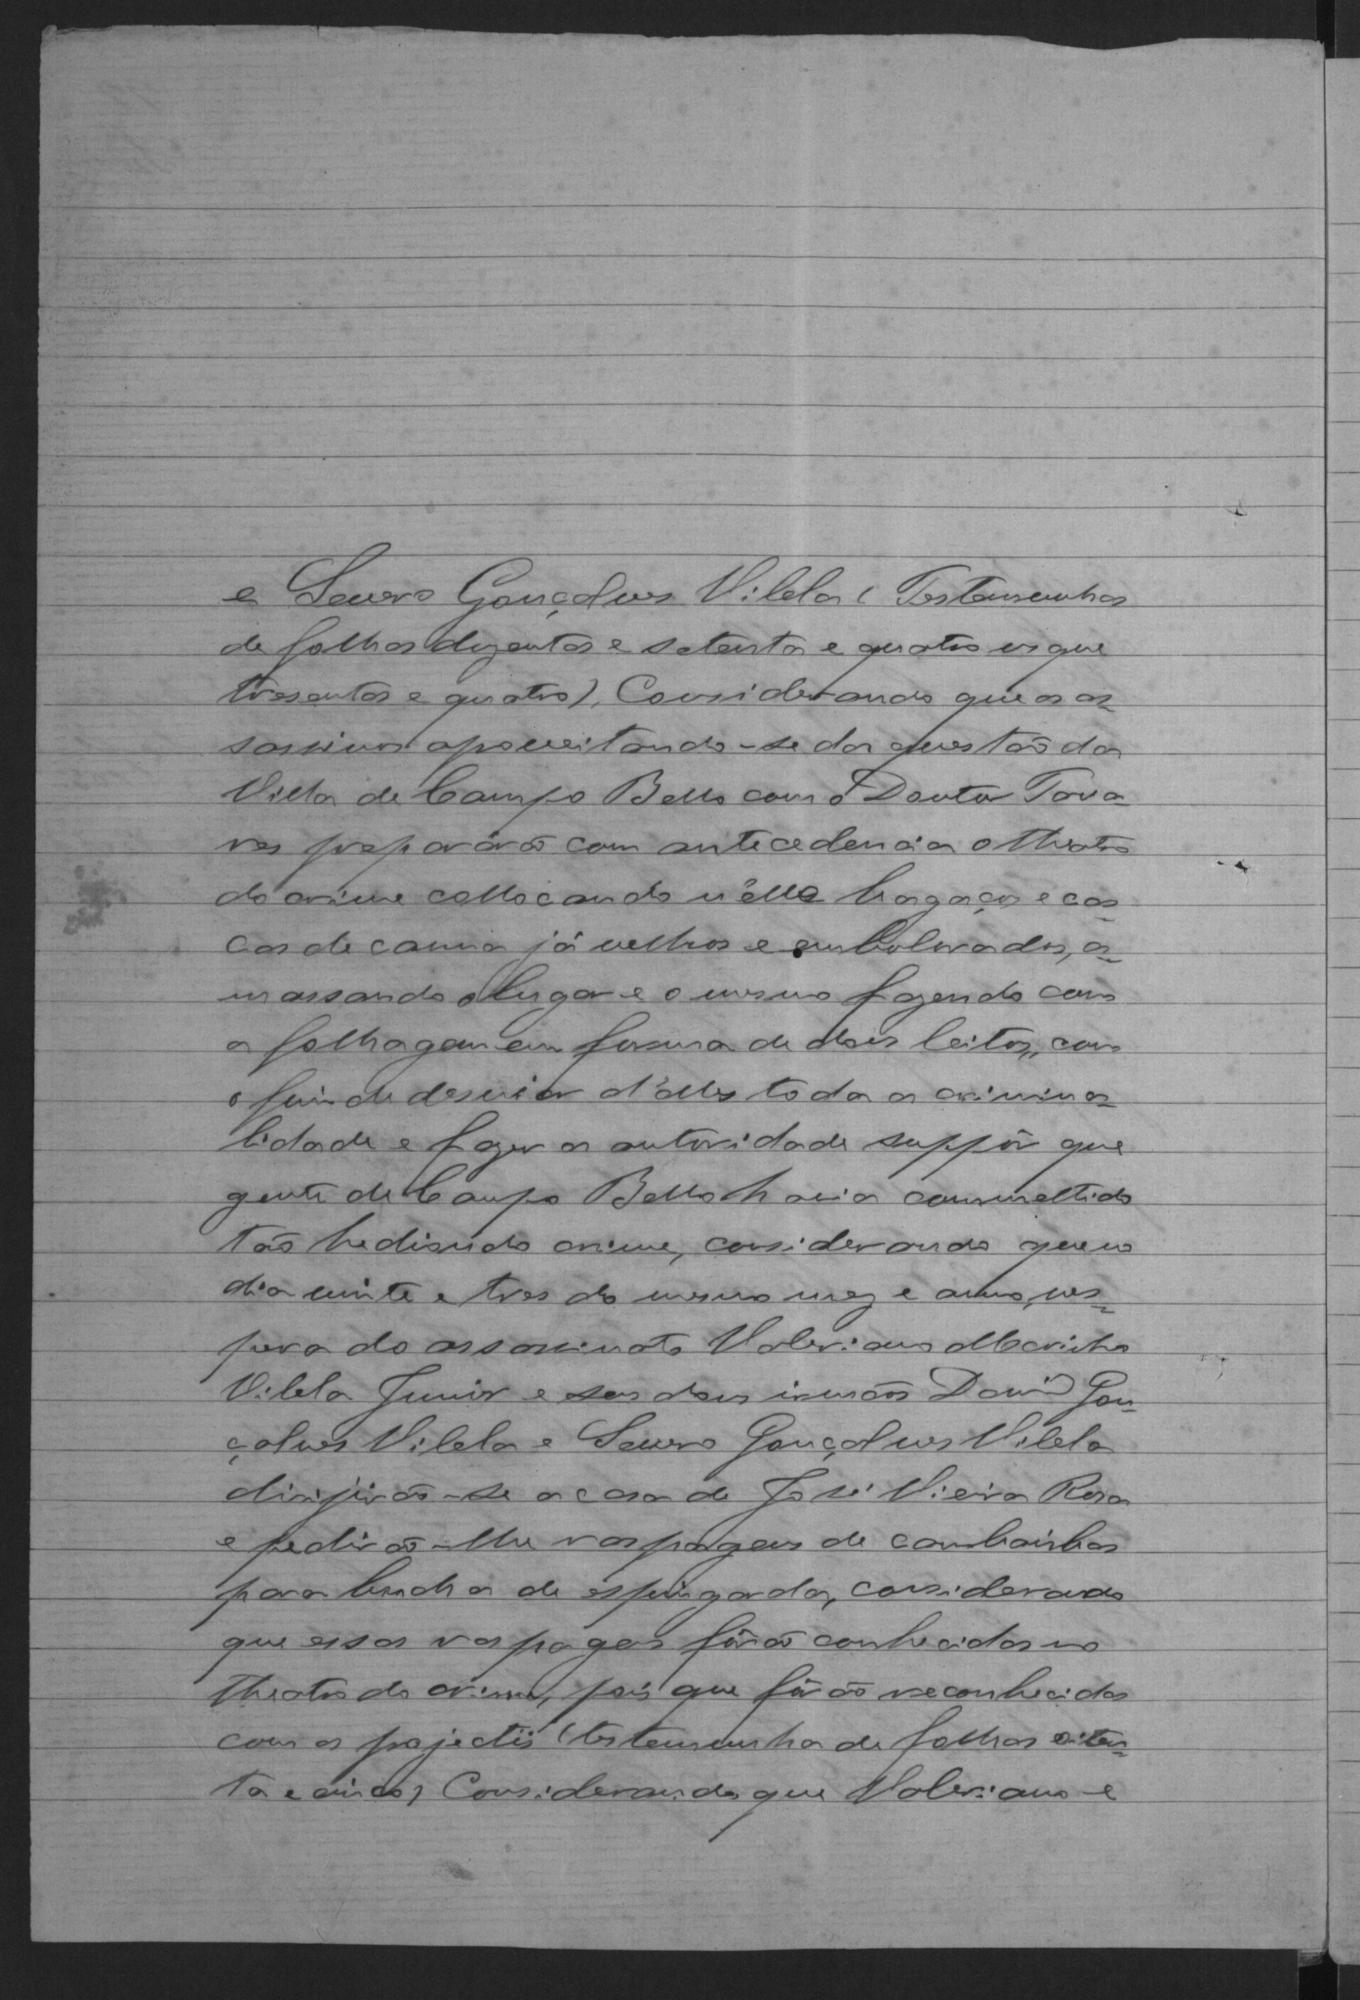 e Severo Gonçalves Vilela (Testemunhas
de folhas duzentas e setenta e quatro usque
tresentas e quatro), Considerando que os as-
sassinos aproveitando-se da questão da
Villa de Campo Bello com o Doutor Tava
res preparárão com antecedencia o theatro
do crime collocando n'elle bagaços e cas-
cas de canna já velhos e embolorados, a-
massando o lugar e o mesmo fazendo com
a folhagem em forma de dois leitos, com
o fim de desviar d'elles toda a crimina-
lidade e fazer a autoridade suppôr que
gente de Campo Bello havia commettido
tão hediondo crime, considerando que no
dia vinte e tres do mesmo mez e anno, ves-
pera do assassinato Valeriano Marinho
Vilela Junior e seus dous irmãos David Gon-
çalves Vilela e Severo Gonçalves Vilela
dirijirão-se a casa de José Vieira Rosa
e pedirão-lhe raspagens de cambaúbas
para bucha de espingarda, considerando
que essas raspagens fôrão conhecidas no
theatro do crime, pois que fôrão reconhecidas
com os projectis (testemunha de folhas oiten-
ta e cinco) Considerando que Valeriano e